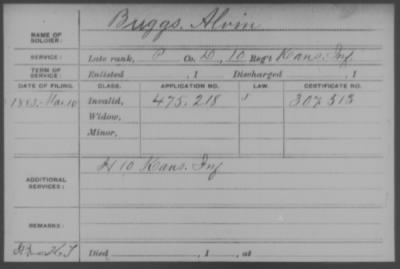 Buggs, Alvin
NAME OF SOLDIER:
SERVICE: Late rank, P Co. D, 10 Reg't Kans. Inf
TERM OF SERVICE: Enlisted , 1 Discharged , 1
DATE OF FILING. CLASS. APPLICATION NO. LAW. CERTIFICATE NO.
1883-Mar. 10 Invalid, 475,218 307,313
Widow,
Minor,
ADDITIONAL SERVICES: 10 Kans. Inf
REMARKS:
Died , 1 , at